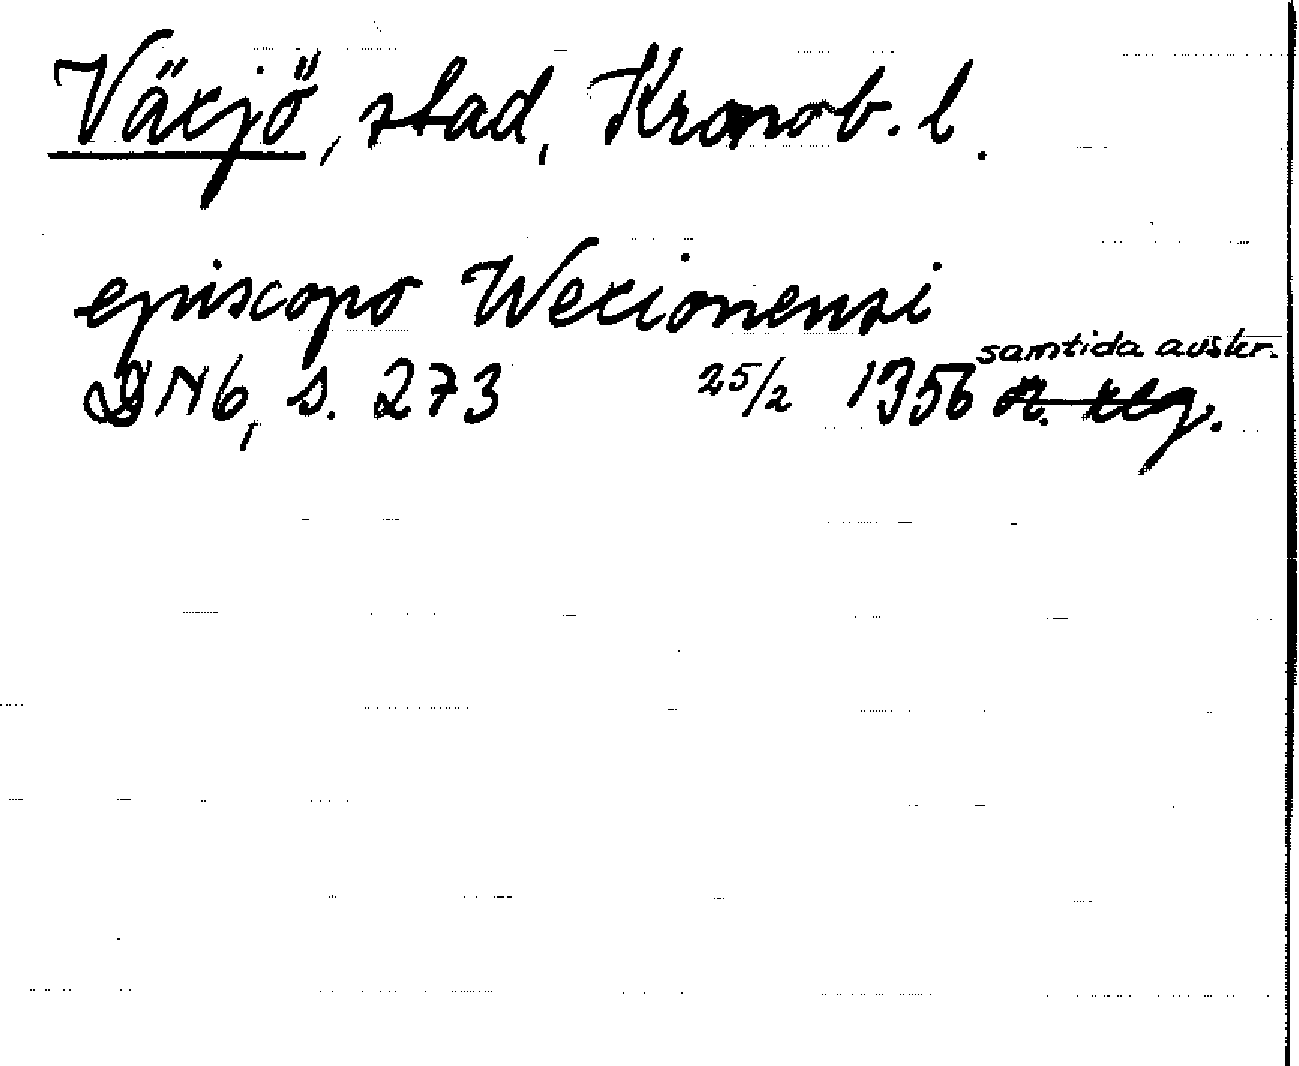 Växjö, stad, Kronob. l.
episcopo Wexionensi
samtida avskr.
DN 6, s. 273 25/2 1356